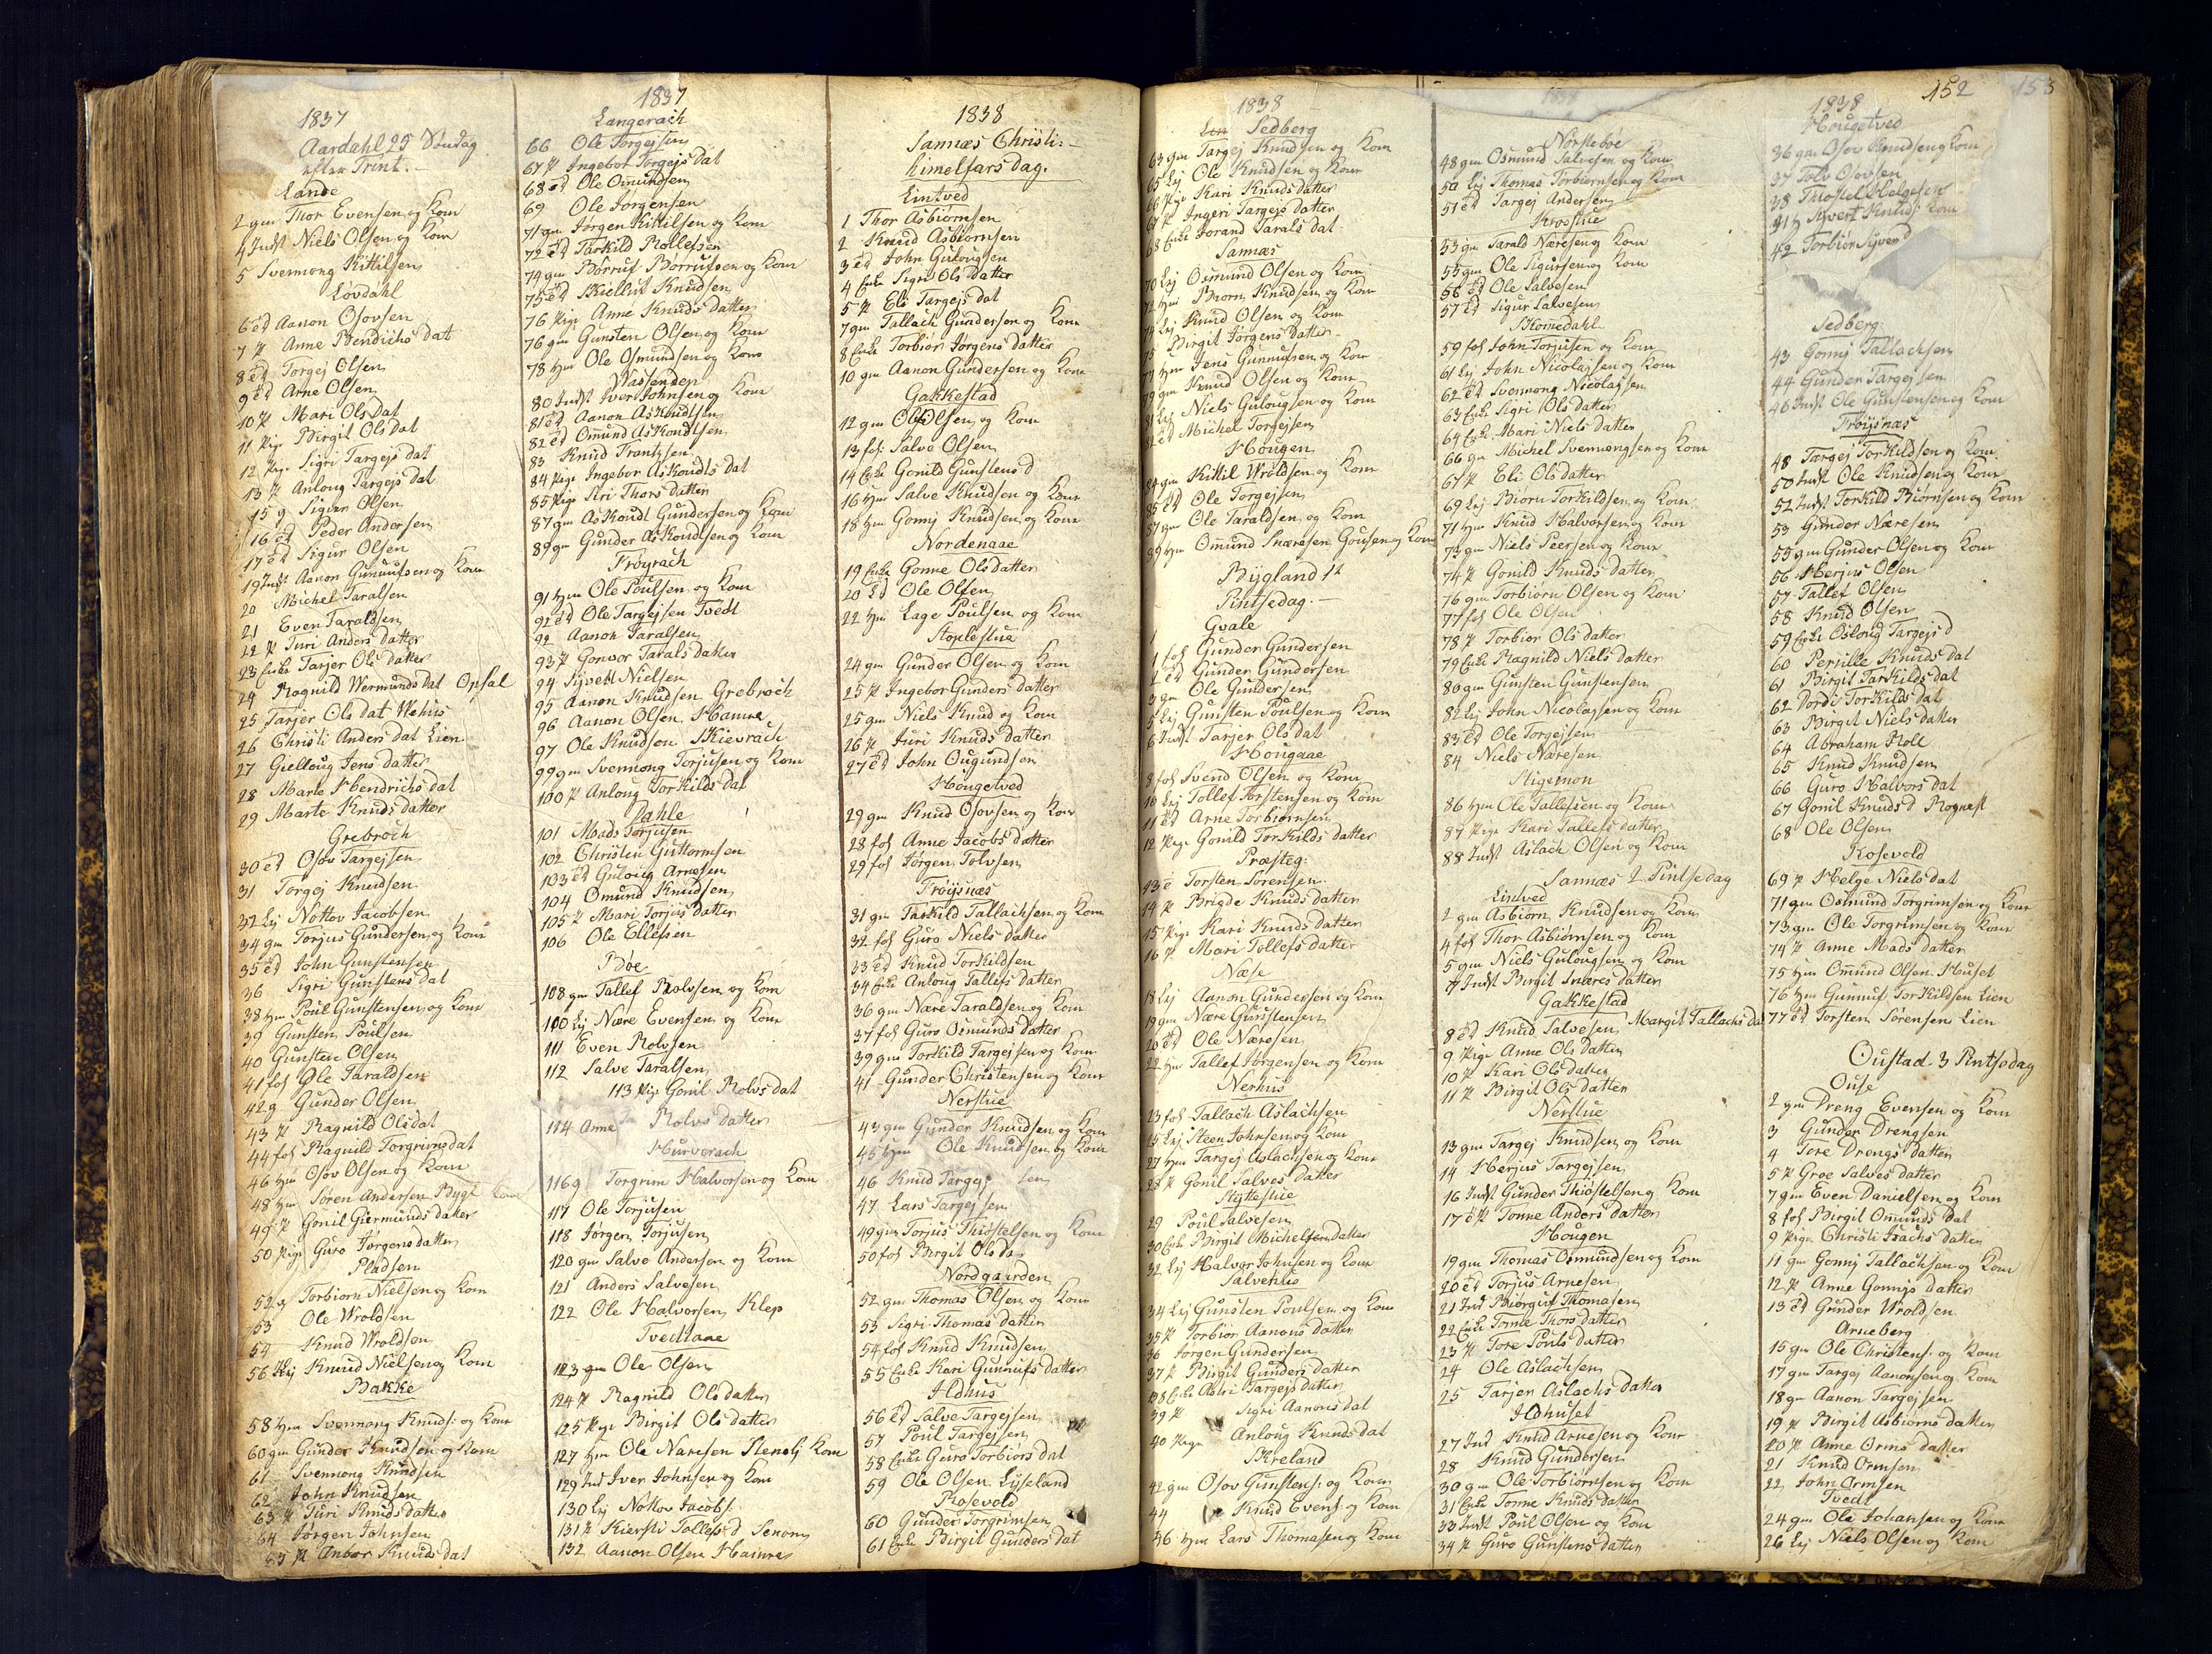 1837
Aardahl 25 Søndag
efter Trint.
Lande
2 gm Thor Evensen og Kom
4 Indst Niels Olsen og Kom
5 Svennong Kittilsen
Lovdahl
6 ed Aanon Osovsen
7 p Anne Bendichs dat
8 ed Torgej Olsen
9 ed Arne Olsen
10 p Mari Ols dat
11 pige Birgit Ols dat
12 pige Sigri Targejs dat
13 p Anloug Targejs dat
15 g Sigur Olsen
16 ed Peder Andersen
17 ed Sigur Olsen
19 Indst Aanon Gunnufsen og Kom
20 Michel Taralsen
21 Even Taraldsen
22 p Turi Anders datter
23 Enke Tarjer Ols datter
24 Ragnild Wermunds dat Opsal
25 Tarjer Ols dat Wehus
26 Christi Anders dat Lien
27 Gielloug Jens datter
28 Marte Hendrichs dat
29 Marte Knuds datter
Grebroch
30 ed Osov Targejsen
31 Torgej Knudsen
32 Lej Nottov Jacobsen
34 gm Torjus Gundersen og Kom
35 ed John Gunstensen
36 Sigri Gunstens dat
38 Hm Poul Gunstensen og Kom
39 Gunsten Poulsen
40 Gunsten Olsen
41 fos Ole Taraldsen
42 g Gunder Olsen
43 p Ragnild Ols dat
44 fos Ragnild Torgrims dat
46 Hm Osov Olsen og Kom
48 Hm Søren Andersen Bygl Kom
49 p Gonil Giermunds datter
50 pige Guro Jørgens datter
Pladsen
52 g Torbiorn Nielsen og Kom
53 Ole Wroldsen
54 Knud Wroldsen
56 Lej Knud Nielsen og Kom
Bakke
58 Hm Svennong Knuds: og Kom
60 gm Gunder Knudsen og Kom
61 Svennong Knudsen
62 John Knudsen
63 p Turi Knuds datter
64 Jorgen Johnsen
65 p Anbor Knuds dat
1837
Langerach
66 Ole Torgejsen
67 p Ingebor Torgejs dat
68 ed Ole Omundsen
69 Ole Jorgensen
71 gm Jorgen Kittilsen og Kom
72 ed Tarkild Rollefsen
74 gm Børruf Børrufsen og Kom
75 ed Kiellut Knudsen
76 pige Anne Knuds datter
76 gm Gunsten Olsen og Kom
78 Hm Ole Osmundsen og Kom
Wassenden
80 Indst Iver Johnsen og Kom
81 ed Aanon Askoudtsen
82 ed Omund Askoudtsen
83 Knud Frantzsen
84 pige Ingebor Askoudts dat
85 pige Siri Thors datter
87 gm Askoudt Gundersen og Kom
89 gm Gunder Askoudtsen og Kom
Frøyrach
91 Hm Ole Poulsen og Kom
92 ed Ole Targejsen Tvedt
92 Aanon Taralsen
93 p Gonvor Tarals datter
94 Syvert Nielsen
95 Aanon Knudsen Grebroch
96 Aanon Olsen Hamre
97 Ole Knudsen Kievrach
99 gm Svennong Torjusen og Kom
100 p Anloug Torkilds dat
Dahle
101 Mads Torjusen
102 Christen Guttormsen
103 ed Guloug Arnesen
104 Omund Knudsen
105 p Mari Torjus datter
106 Ole Ellefsen
Bøe
108 gm Tallef Rolvsen og Kom
100 Lej Nære Evensen og Kom
111 Even Rolvsen
112 Salve Taralsen
113 pige Gonil Rolvs dat
114 Anne Rolvs datter
Hurverach
116 g Torgrim Halvorsen og Kom
117 Ole Torjusen
118 Jørgen Torjusen
120 gm Salve Andersen og Kom
121 Anders Salvesen
122 Ole Halvorsen Klep
Tvedtaae
123 gm Ole Olsen
124 p Ragnild Ols datter
125 pige Birgit Ols datter
127 Hm Ole Næresen Stenslj Kom
129 Ind Iver Johnsen og Kom
130 Lej Nottov Jacobs:
131 p Kiersti Tollefs d Senom
132 Aanon Olsen Hamre
1838
Sannæs Christi
himelfars dag.
Lintved
1 Thor Asbiørnsen
2 Knud Asbiørnsen
3 ed John Gulougsen
4 Enke Sigri Ols datter
5 p Eli Targejs dat
7 gm Tallach Gundersen og Kom
8 Enke Torbior Jørgens datter
10 gm Aanon Gundersen og Kom
Gakkestad
12 gm Ole Olsen og Kom
13 fos: Salve Olsen
14 Enke Gonild Gunstens d
16 Hm Salve Knudsen og Kom
18 Hm Gonnj Knudsen og Kom
Nordenaae
19 Enke Gonne Ols datter
20 Ed Ole Olsen
22 Hm Lage Poulsen og Kom
Stoplestue
24 gm Gunder Olsen og Kom
25 p Ingebor Gunders datter
25 gm Niels Knud og Kom
26 p Juri Knuds datter
27 ed John Ougundsen
Hougetved
29 gm Knud Osovsen og Kom
28 fos Anne Jacobs datter
29 fos Jørgen Tolvsen
Frøysnæs
31 gm Tarkild Tallachsen og Kom
32 fos Guro Niels datter
33 ed Knud Torkildsen
34 Enke Anloug Tallefs datter
36 gm Nære Taraldsen og Kom
37 fos Guro Osmunds datter
39 gm Torkild Targejsen og Kom
41 Gunder Christensen og Kom
Nerstue
43 gm Gunder Knudsen og Kom
45 Hm Ole Knudsen og Kom
46 Knud Targejsen
47 Lars Targejsen
49 gm Torjus Thiøstelsen og Kom
50 fos Birgit Ols da
Nordgaarden
52 gm Thomas Olsen og Kom
53 Sigri Thomas datter
54 fos Knud Knudsen
55 Enke Kari Gunnufs datter
Ildhus
56 Ed Salve Targejsen
57 Poul Targejsen
58 Enke Guro Torbiors dat
59 Ole Olsen Lyseland
Rosevold
60 Gunder Torgrimsen
61 Enke Birgit Gunders dat
1838
Sedberg
63 gm Targej Knudsen og Kom
65 Lej Ole Knudsen og Kom
66 pige Kari Knuds datter
67 p Ingeri Targejs datter
68 Enke Jorand Tarals dat
Sannæs
70 Lej Osmund Olsen og Kom
72 Hm Biorn Knudsen og Kom
74 Lej Knud Olsen og Kom
75 Birgit Jorgens datter
77 Hm Jens Gunnufsen og Kom
79 gm Knud Olsen og Kom
81 Lej Niels Gulougsen og Kom
82 ed Michel Torgejsen
Hougen
84 gm Kittil Wroldsen og Kom
85 ed Ole Torgejsen
87 gm Ole Taraldsen og Kom
89 Hm Omund Snæresen Gousen og Kom
Bygland 1st
Pintsedag.
Gvale
1 fos Gunder Gundersen
2 ed Gunder Gundersen
3 gm Ole Gundersen
5 Lej Gunsten Poulsen og Kom
6 Indst Tarjer Ols dat
Hougaae
8 fos Svend Olsen og Kom
10 Lej Tollef Torstensen og Kom
11 ed Arne Torbiornsen
12 pige Gonild Torkilds datter
Præsteg:
13 e Torsten Sørensen
14 p Brigde Knuds datter
15 pige Kari Knuds datter
16 p Mari Tollefs datter
Næse
18 Lej Aanon Gundersen og Kom
19 gm Nære Gunstensen
20 ed Ole Næresen
22 Hm Tallef Jørgensen og Kom
Nerhus
23 fos Tallach Aslachsen
25 Lej Steen Johnsen og Kom
27 Hm Targej Aslachsen og Kom
28 p Gonil Salves datter
Stykkestue
29 Poul Salvesen
30 Enke Birgit Michelsen datter
32 Lej Halvor Johnsen og Kom
Salvehus
34 Lej Gunsten Poulsen og Kom
35 p Torbior Aanons datter
36 Jorgen Gundersen
37 p Birgit Gunders datter
38 Enke Astri Targejs datter
39 p Sigri Aanons dat
40 pige Anloug Knuds dat
Skreland
42 gm Osov Gunstens: og Kom
44 Knud Evens: og Kom
46 Hm Lars Thomasen og Kom
Norstebøe
48 gm Osmund Salvesen og Kom
50 Lej Thomas Torbiornsen og Kom
51 ed Targej Andersen
Krostue
53 gm Tarald Næresen og Kom
55 gm Ole Sigursen og Kom
56 ed Ole Salvesen
57 ed Sigur Salvesen
Skomedahl
59 fos John Torjusen og Kom
61 Lej John Nicolajsen og Kom
62 ed Svennong Nicolajsen
63 Enke Sigri Ols datter
64 Enke Mari Niels datter
66 gm Michel Svennongsen og Kom
67 p Eli Ols datter
69 Lej Biorn Torkildsen og Kom
71 Hm Knud Halvorsen og Kom
73 gm Niels Peersen og Kom
74 p Gonild Knuds datter
76 gm Torbiorn Olsen og Kom
77 fos Ole Olsen
78 p Torbior Ols datter
79 Enke Ragnild Niels datter
80 gm Gunsten Gunstensen
82 Lej John Nicolajsen og Kom
83 ed Ole Torgejsen
84 Niels Næresen
Stigemon
86 Hm Ole Tallefsen og Kom
87 pige Kari Tallefs datter
88 Indst Aslach Olsen og Kom
Sannæs 2 Pintsedag
Lintved
2 gm Asbiorn Knudsen og Kom
4 fos Thor Asbiørnsen og Kom
5 gm Niels Gulougsen og Kom
7 Indst Birgit Snæres datter
Gakkestad
8 ed Knud Salvesen Margit Tallachs da
9 pige Anne Ols datter
10 p Kari Ols datter
11 p Birgit Ols datter
Nerstue
13 gm Targej Knudsen og Kom
14 Herjus Targejsen
16 Indst Gunder Thiøstelsen og Kom
17 p Tonne Anders datter
Hougen
19 gm Thomas Osmundsen og Kom
20 ed Torjus Arnesen
21 Ind Biorguf Thomasen
22 Enke Tonne Thors datter
23 p Tore Pouls datter
24 Ole Aslachsen
25 Tarjer Aslachs datter
Ildhuset
27 Ind Knud Arnesen og Kom
28 Knud Gundersen
30 gm Ole Torbiornsen og Kom
31 Enke Tonne Knuds datter
33 Indst Poul Olsen og Kom
34 p Guro Gunstens datter
152
153
1838
Hougetved
36 gm Osov Knudsen og Kom
37 Tolv Osovsen
38 Thiostel Helgesen
41 Syvert Knuds: Kom
42 Torbior Syver
Sedberg
43 Gonnj Tallachsen
44 Gunder Targejsen
46 Indst Ole Gunstensen og Kom
Frøysnæs
48 Targej Torkildsen og Kom
50 Indst Ole Knudsen og Kom
52 Indst Torkild Biornsen og Kom
53 Gunder Næresen
55 gm Gunder Olsen og Kom
56 Herjus Olsen
57 Tallef Olsen
58 Knud Olsen
59 Enke Osloug Targejs d
60 Pernille Knuds dat
61 Birgit Tarkilds dat
62 Dordi Torkilds dat
63 Birgit Niels datter
64 Abraham Holl
65 Knud Knudsen
66 Guro Halvors dat
67 Gonil Knuds d Rognest
68 Ole Olsen
Rosevold
69 p Helge Niels dat
71 gm Osmund Torgrimsen og Kom
73 gm Ole Torgrimsen og Kom
74 p Anne Mads datter
75 Hm Omund Olsen Huset
76 Hm Gunnuf Torkildsen Lien
77 ed Torsten Sørensen Lien
Oustad 3 Pintsedag
Ouse
2 gm Dreng Evensen og Kom
3 Gunder Drengsen
4 Tore Drengs datter
5 p Groe Salves datter
7 gm Even Danielsen og Kom
8 fos Birgit Omunds dat
9 pige Christi Isachs datter
11 gm Gonnj Tallachsen og Kom
12 p Anne Gonnjs datter
13 ed Gunder Wroldsen
Arneberg
15 gm Ole Christens: og Kom
17 gm Targej Aanonsen og Kom
18 gm Aanon Targejsen
19 p Birgit Asbiørns datter
20 p Anne Orms datter
21 Knud Ormsen
22 John Ormsen
Tvedt
24 gm Ole Johansen og Kom
26 Lej Niels Olsen og Kom